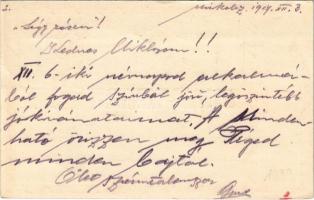 Miskolc, 1914. XII. 3.
Kedves Miklósom!!
XII. 6-iki névnapod alkalmá-
ból fogad szívből jövő, legőszintébb
jókívánataimat. A Minden-
ható őrizzen meg Téged
minden bajtól.
Ölel számtalanszor